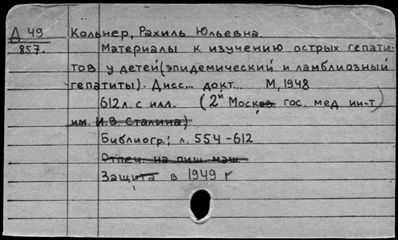 Д 49 Кольнер, Рахиль Юльевна.
857. Материалы к изучению острых гепати-
тов у детей (эпидемический и ламблиозный
гепатиты). Дисс... докт... М, 1948
612 л. с илл. (2й Москов. гос. мед ин-т)
им. И.В. Сталина)
Библиогр.: л. 554-612
Отпеч. на пиш. маш.
Защита в 1949 г